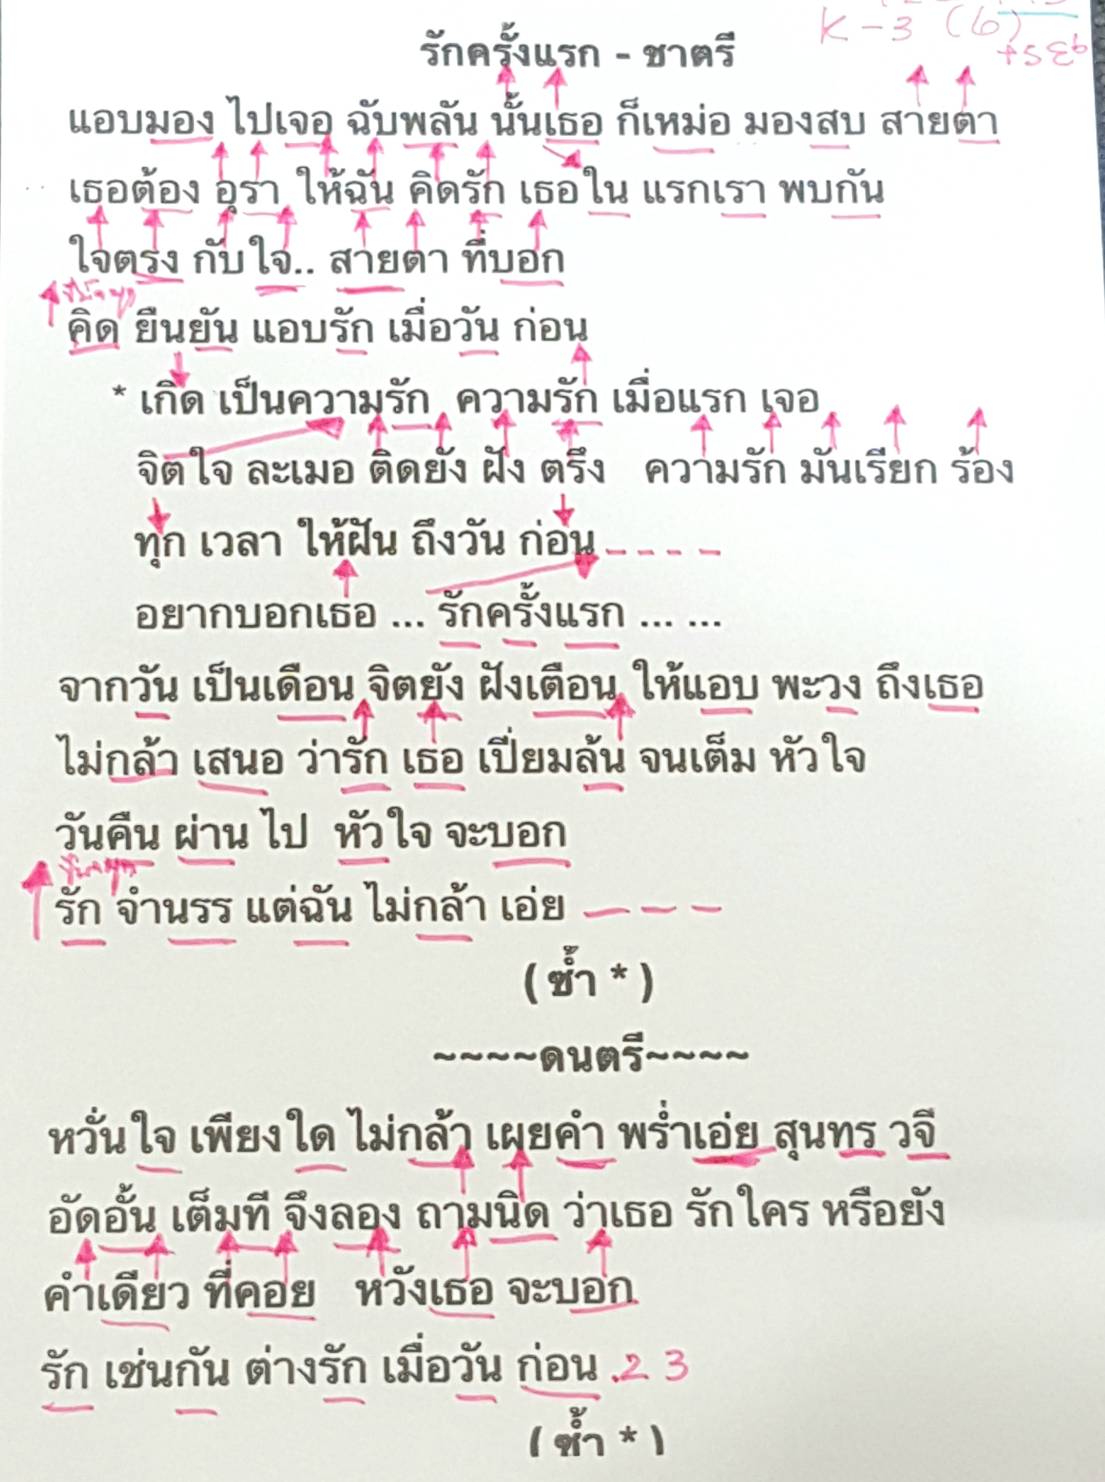 K-3 (6)
รักครั้งแรก - ชาตรี
แอบมอง ไปเจอ ฉับพลัน นั้นเธอ ก็เหม่อ มองสบ สายตา
เธอต้อง อุรา ให้ฉัน คิดรัก เธอใน แรกเรา พบกัน
ใจตรง กับใจ.. สายตา ที่บอก
คิด ยืนยัน แอบรัก เมื่อวัน ก่อน
* เกิด เป็นความรัก ความรัก เมื่อแรก เจอ
จิตใจ ละเมอ ติดยัง ฝัง ตรึง ความรัก มันเรียก ร้อง
ทุก เวลา ให้ฝัน ถึงวัน ก่อน
อยากบอกเธอ ... รักครั้งแรก ... ...
จากวัน เป็นเดือน จิตยัง ฝังเตือน ให้แอบ พะวง ถึงเธอ
ไม่กล้า เสนอ ว่ารัก เธอ เปี่ยมล้น จนเต็ม หัวใจ
วันคืน ผ่าน ไป หัวใจ จะบอก
รัก จำนรร แต่ฉัน ไม่กล้า เอ่ย
( ซ้ำ * )
~~~~ดนตรี~~~~
หวั่นใจ เพียงใด ไม่กล้า เผยคำ พร่ำเอ่ย สุนทร วจี
อัดอั้น เต็มที จึงลอง ถามนิด ว่าเธอ รักใคร หรือยัง
คำเดียว ที่คอย หวังเธอ จะบอก
รัก เช่นกัน ต่างรัก เมื่อวัน ก่อน .2 3
( ซ้ำ * )